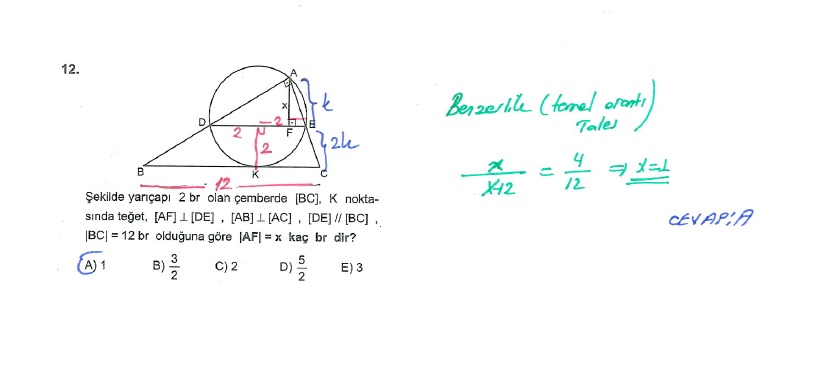 12.
A
k
x
2
D
2
F
E
2
2k
B
K
C
12
Şekilde yarıçapı 2 br olan çemberde [BC], K nokta-
sında teğet, [AF] ⊥ [DE] , [AB] ⊥ [AC] , [DE] // [BC] ,
|BC| = 12 br olduğuna göre |AF| = x kaç br dir?
A) 1 B) 3/2 C) 2 D) 5/2 E) 3
Benzerlik (temel orantı)
Tales
x/x+2 = 4/12 ⇒ x=1
CEVAP: A